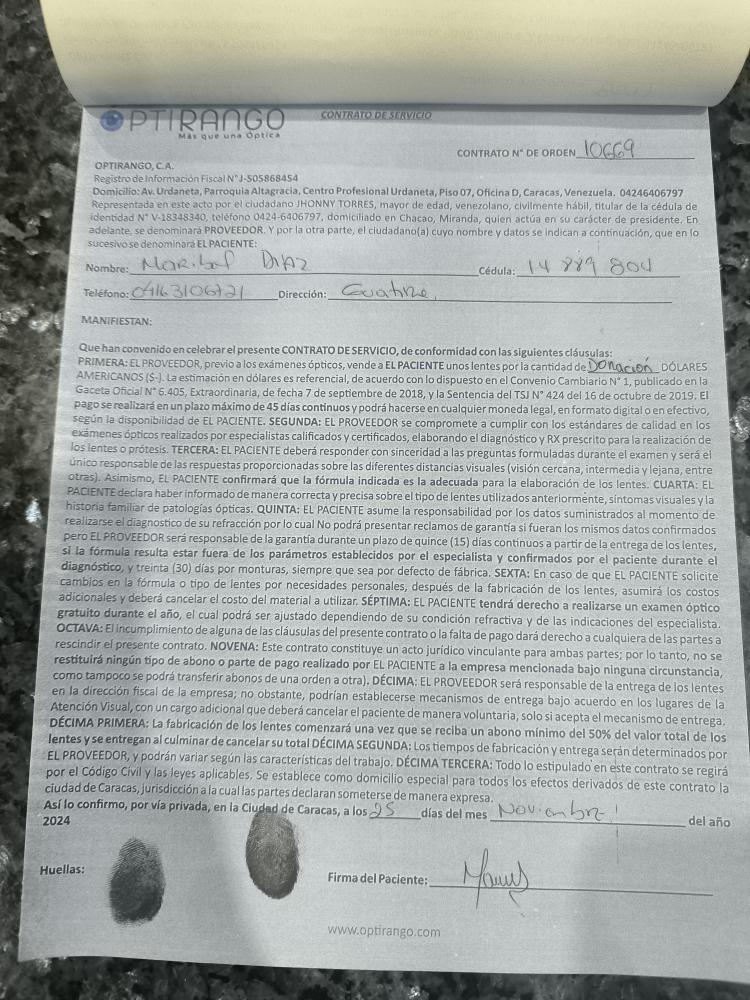 OPTIRANGO
Más que una Óptica
CONTRATO DE SERVICIO
CONTRATO N° DE ORDEN 10669
OPTIRANGO, C.A.
Registro de Información Fiscal N°J-505868454
Domicilio: Av. Urdaneta, Parroquia Altagracia, Centro Profesional Urdaneta, Piso 07, Oficina D, Caracas, Venezuela. 04246406797
Representada en este acto por el ciudadano JHONNY TORRES, mayor de edad, venezolano, civilmente hábil, titular de la cédula de
identidad N° V-18348340, teléfono 0424-6406797, domiciliado en Chacao, Miranda, quien actúa en su carácter de presidente. En
adelante, se denominará PROVEEDOR. Y por la otra parte, el ciudadano(a) cuyo nombre y datos se indican a continuación, que en lo
sucesivo se denominará EL PACIENTE:
Nombre: DIAZ Cédula: 14 889 804
Teléfono: 04163106721 Dirección:
MANIFIESTAN:
Que han convenido en celebrar el presente CONTRATO DE SERVICIO, de conformidad con las siguientes cláusulas:
PRIMERA: EL PROVEEDOR, previo a los exámenes ópticos, vende a EL PACIENTE unos lentes por la cantidad de Donación DÓLARES
AMERICANOS ($-). La estimación en dólares es referencial, de acuerdo con lo dispuesto en el Convenio Cambiario N° 1, publicado en la
Gaceta Oficial N° 6.405, Extraordinaria, de fecha 7 de septiembre de 2018, y la Sentencia del TSJ N° 424 del 16 de octubre de 2019. El
pago se realizará en un plazo máximo de 45 días continuos y podrá hacerse en cualquier moneda legal, en formato digital o en efectivo,
según la disponibilidad de EL PACIENTE. SEGUNDA: EL PROVEEDOR se compromete a cumplir con los estándares de calidad en los
exámenes ópticos realizados por especialistas calificados y certificados, elaborando el diagnóstico y RX prescrito para la realización de
los lentes o prótesis. TERCERA: EL PACIENTE deberá responder con sinceridad a las preguntas formuladas durante el examen y será el
único responsable de las respuestas proporcionadas sobre las diferentes distancias visuales (visión cercana, intermedia y lejana, entre
otras). Asimismo, EL PACIENTE confirmará que la fórmula indicada es la adecuada para la elaboración de los lentes. CUARTA: EL
PACIENTE declara haber informado de manera correcta y precisa sobre el tipo de lentes utilizados anteriormente, síntomas visuales y la
historia familiar de patologías ópticas. QUINTA: EL PACIENTE asume la responsabilidad por los datos suministrados al momento de
realizarse el diagnostico de su refracción por lo cual No podrá presentar reclamos de garantía si fueran los mismos datos confirmados
pero EL PROVEEDOR será responsable de la garantía durante un plazo de quince (15) días continuos a partir de la entrega de los lentes,
si la fórmula resulta estar fuera de los parámetros establecidos por el especialista y confirmados por el paciente durante el
diagnóstico, y treinta (30) días por monturas, siempre que sea por defecto de fábrica. SEXTA: En caso de que EL PACIENTE solicite
cambios en la fórmula o tipo de lentes por necesidades personales, después de la fabricación de los lentes, asumirá los costos
adicionales y deberá cancelar el costo del material a utilizar. SÉPTIMA: EL PACIENTE tendrá derecho a realizarse un examen óptico
gratuito durante el año, el cual podrá ser ajustado dependiendo de su condición refractiva y de las indicaciones del especialista.
OCTAVA: El incumplimiento de alguna de las cláusulas del presente contrato o la falta de pago dará derecho a cualquiera de las partes a
rescindir el presente contrato. NOVENA: Este contrato constituye un acto jurídico vinculante para ambas partes; por lo tanto, no se
restituirá ningún tipo de abono o parte de pago realizado por EL PACIENTE a la empresa mencionada bajo ninguna circunstancia,
como tampoco se podrá transferir abonos de una orden a otra). DÉCIMA: EL PROVEEDOR será responsable de la entrega de los lentes
en la dirección fiscal de la empresa; no obstante, podrían establecerse mecanismos de entrega bajo acuerdo en los lugares de la
Atención Visual, con un cargo adicional que deberá cancelar el paciente de manera voluntaria, solo si acepta el mecanismo de entrega.
DÉCIMA PRIMERA: La fabricación de los lentes comenzará una vez que se reciba un abono mínimo del 50% del valor total de los
lentes y se entregan al culminar de cancelar su total DÉCIMA SEGUNDA: Los tiempos de fabricación y entrega serán determinados por
EL PROVEEDOR, y podrán variar según las características del trabajo. DÉCIMA TERCERA: Todo lo estipulado en este contrato se regirá
por el Código Civil y las leyes aplicables. Se establece como domicilio especial para todos los efectos derivados de este contrato la
ciudad de Caracas, jurisdicción a la cual las partes declaran someterse de manera expresa.
Así lo confirmo, por vía privada, en la Ciudad de Caracas, a los 25 días del mes Noviembre del año
2024
Huellas:
Firma del Paciente:
www.optirango.com